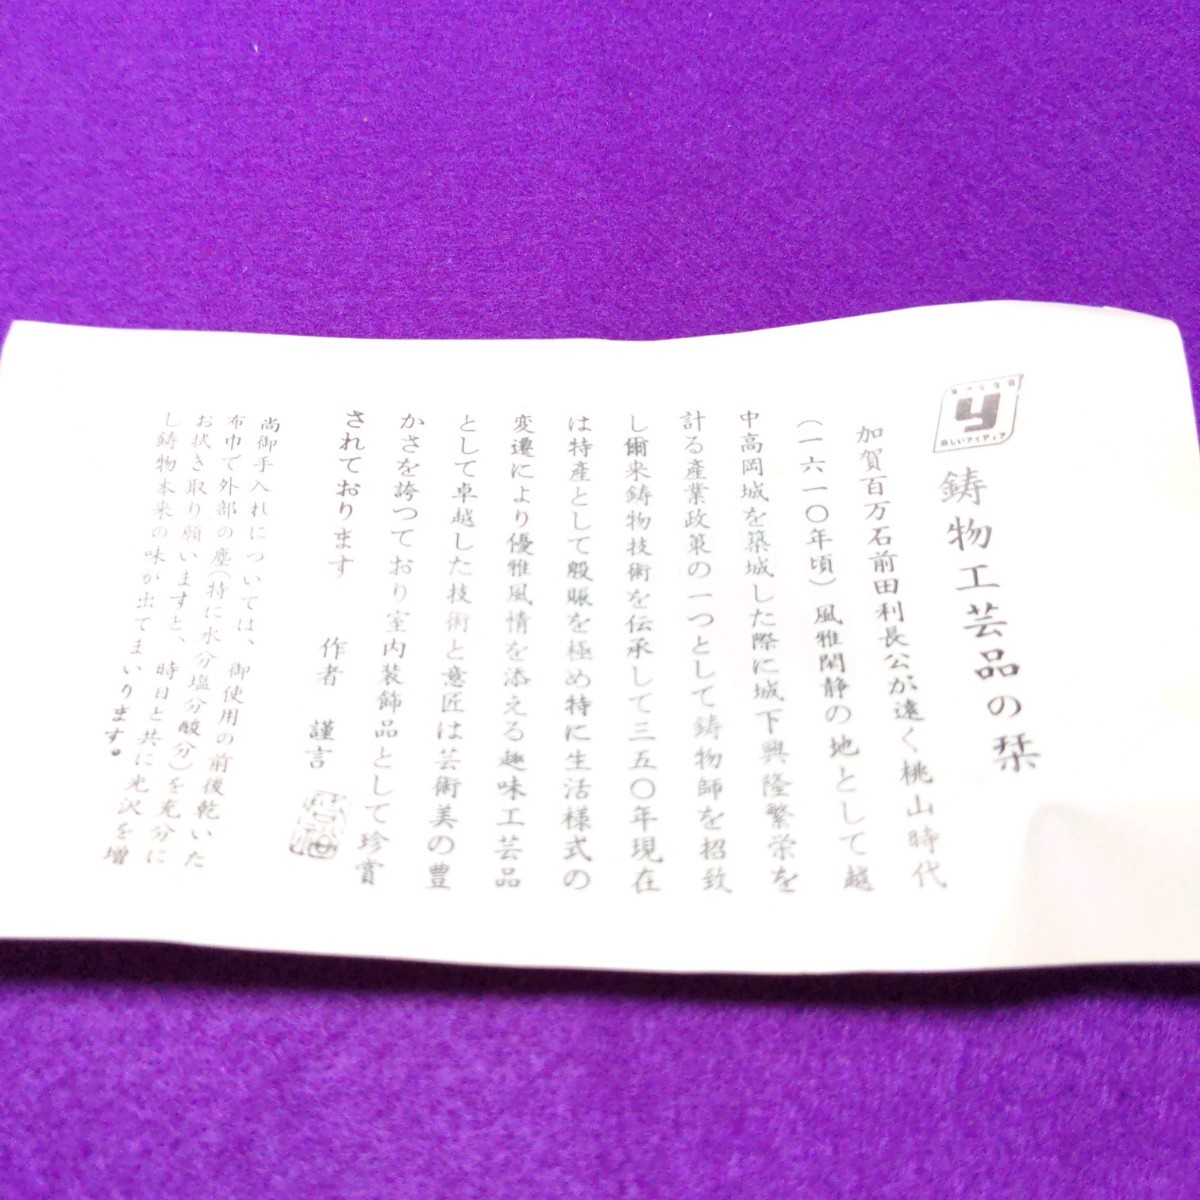 豊かな生活
y
新しいアイディア
鋳物工芸品の栞
加賀百万石前田利長公が遠く桃山時代
(一六一〇年頃)風雅閑静の地として越
中高岡城を築城した際に城下興隆繁栄を
計る産業政策の一つとして鋳物師を招致
し爾来鋳物技術を伝承して三五〇年現在
は特産として殷賑を極め特に生活様式の
変遷により優雅風情を添える趣味工芸品
として卓越した技術と意匠は芸術美の豊
かさを誇つており室内装飾品として珍賞
されております
作者 謹言
尚御手入れについては、御使用の前後乾いた
布巾で外部の塵(特に水分塩分酸分)を充分に
お拭き取り願いますと、時日と共に光沢を増
し鋳物本来の味が出てまいります。